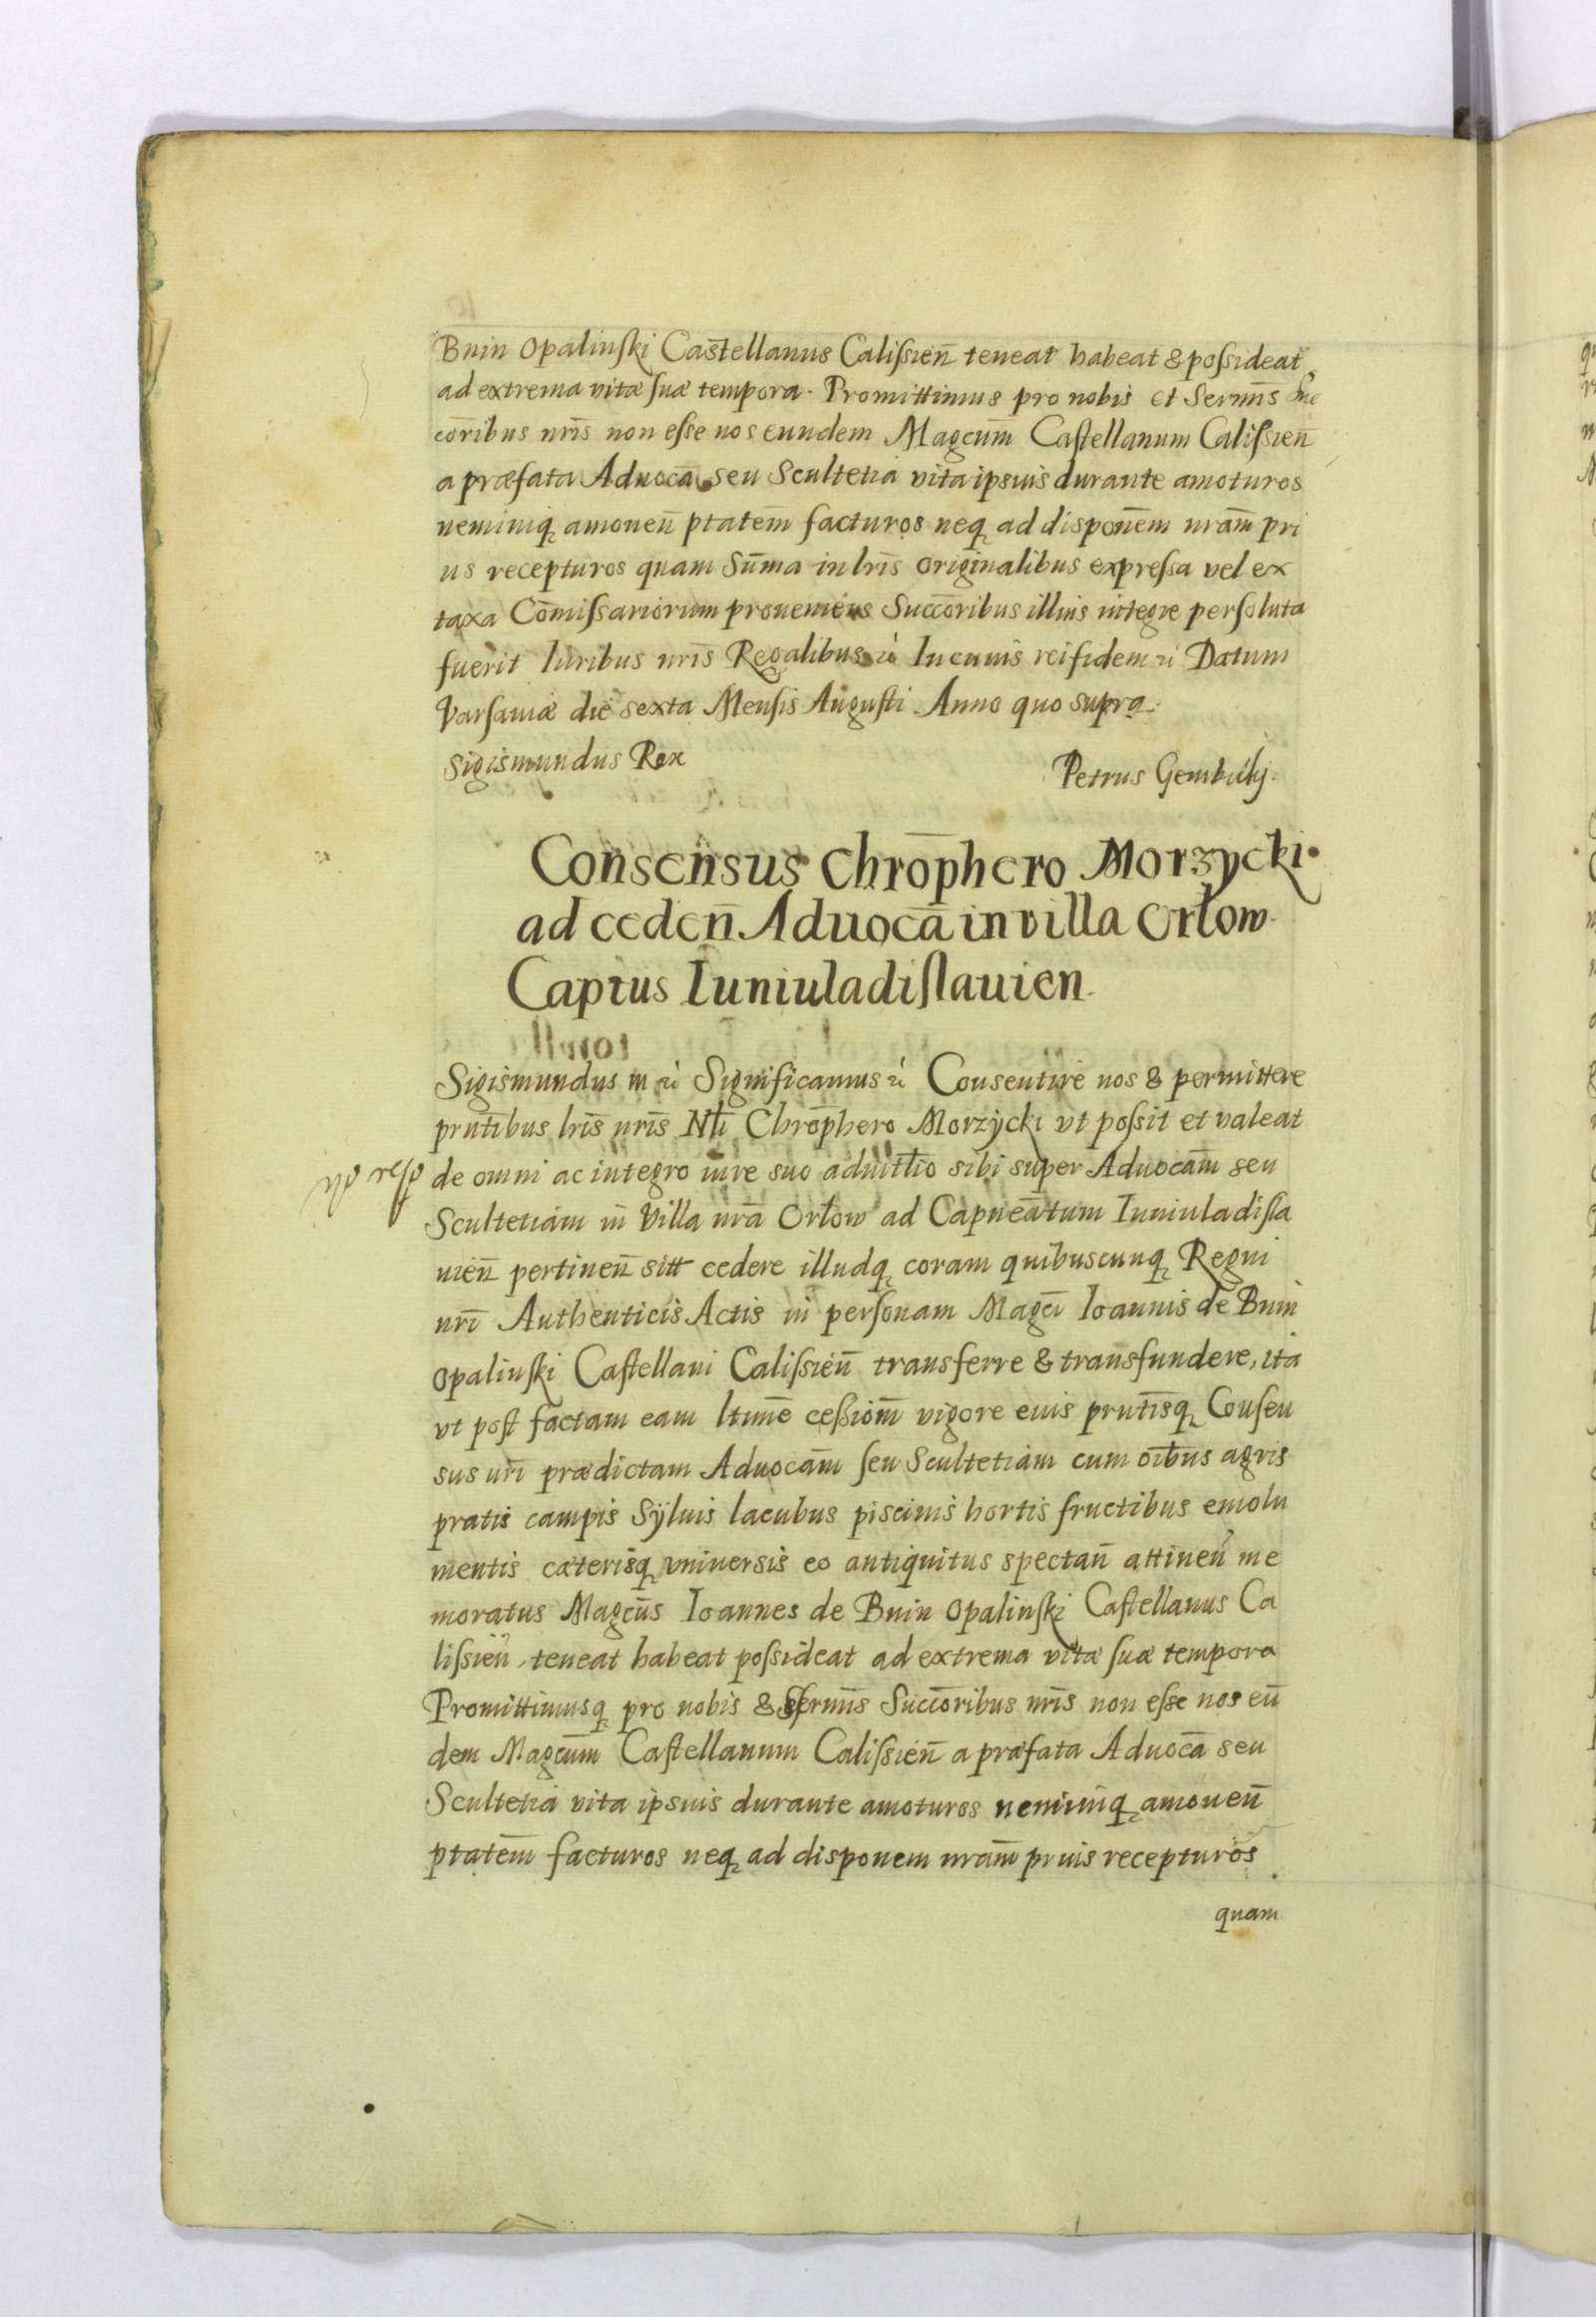 Bnin Opalinski Castellanus Calissien̄ teneat habeat & possideat
ad extrema vitæ suæ tempora. Promittimus pro nobis et Serm̄s Suc
cōribus nrīs non esse nos eundem Magcum̄ Castellanum Calissien̄
a præfata Aduocā seu Scultetia vita ipsius durante amoturos
neminiq amouen̄ ptatem̄ facturos neq ad disponēm nram̄ pri
us recepturos quam Sum̄a in lrīs originalibus expressa vel ex
taxa Com̄issariorum proueniens Succōribus illius integre persoluta
fuerit Iuribus nrīs Regalibus ꝛc̀ In cuius rei fidem ꝛc̀ Datum
Varsaniæ die sexta Mensis Augusti Anno quo supra.
Sigismundus Rex
Petrus Gembicky.
Consensus Chrōphero Morzycki
ad ceden̄ Aduocā in villa Orłow
Captus Iuniuladislauien.
Sigismundus III ꝛc̀ Significamus ꝛc̀ Consentire nos & permittere
prnt̄ibus lrīs nrīs Nlī Chrōphero Morzycki vt possit et valeat
de omni ac integro iure suo aduitłio sibi super Aduocām seu
Scultetiam in Villa nrā Orłow ad Capneātum Iuniuladisla
uien̄ pertinen̄ sitt cedere illudq coram quibuscunq Regni
nrī Authenticis Actis in personam Magcī Ioannis de Bnin
Opalinski Castellani Calissien̄ transferre & transfundere, ita
vt post factam eam ltimē cessionm̄ vigore euis prntīsq Consen
sus nrī prædictam Aduocām seu Scultetiam cum oībus agris
pratis campis Syluis lacubus piscinis hortis fructibus emolu
mentis cæterisq vniuersis eo antiquitus spectan̄ attinen̄ me
moratus Magcūs Ioannes de Bnin Opalinski Castellanus Ca
lissien̄, teneat habeat possideat ad extrema vitæ suæ tempora
Promittimusq pro nobis & Serm̄s Succōribus nrīs non esse nos eū
dem Magcum̄ Castellanum Calissien̄ a præfata Aduocā seu
Scultetia vita ipsuis durante amoturos neminiq amouen̄
ptatem̄ facturos neq ad disponem nram̄ prius recepturos
quam